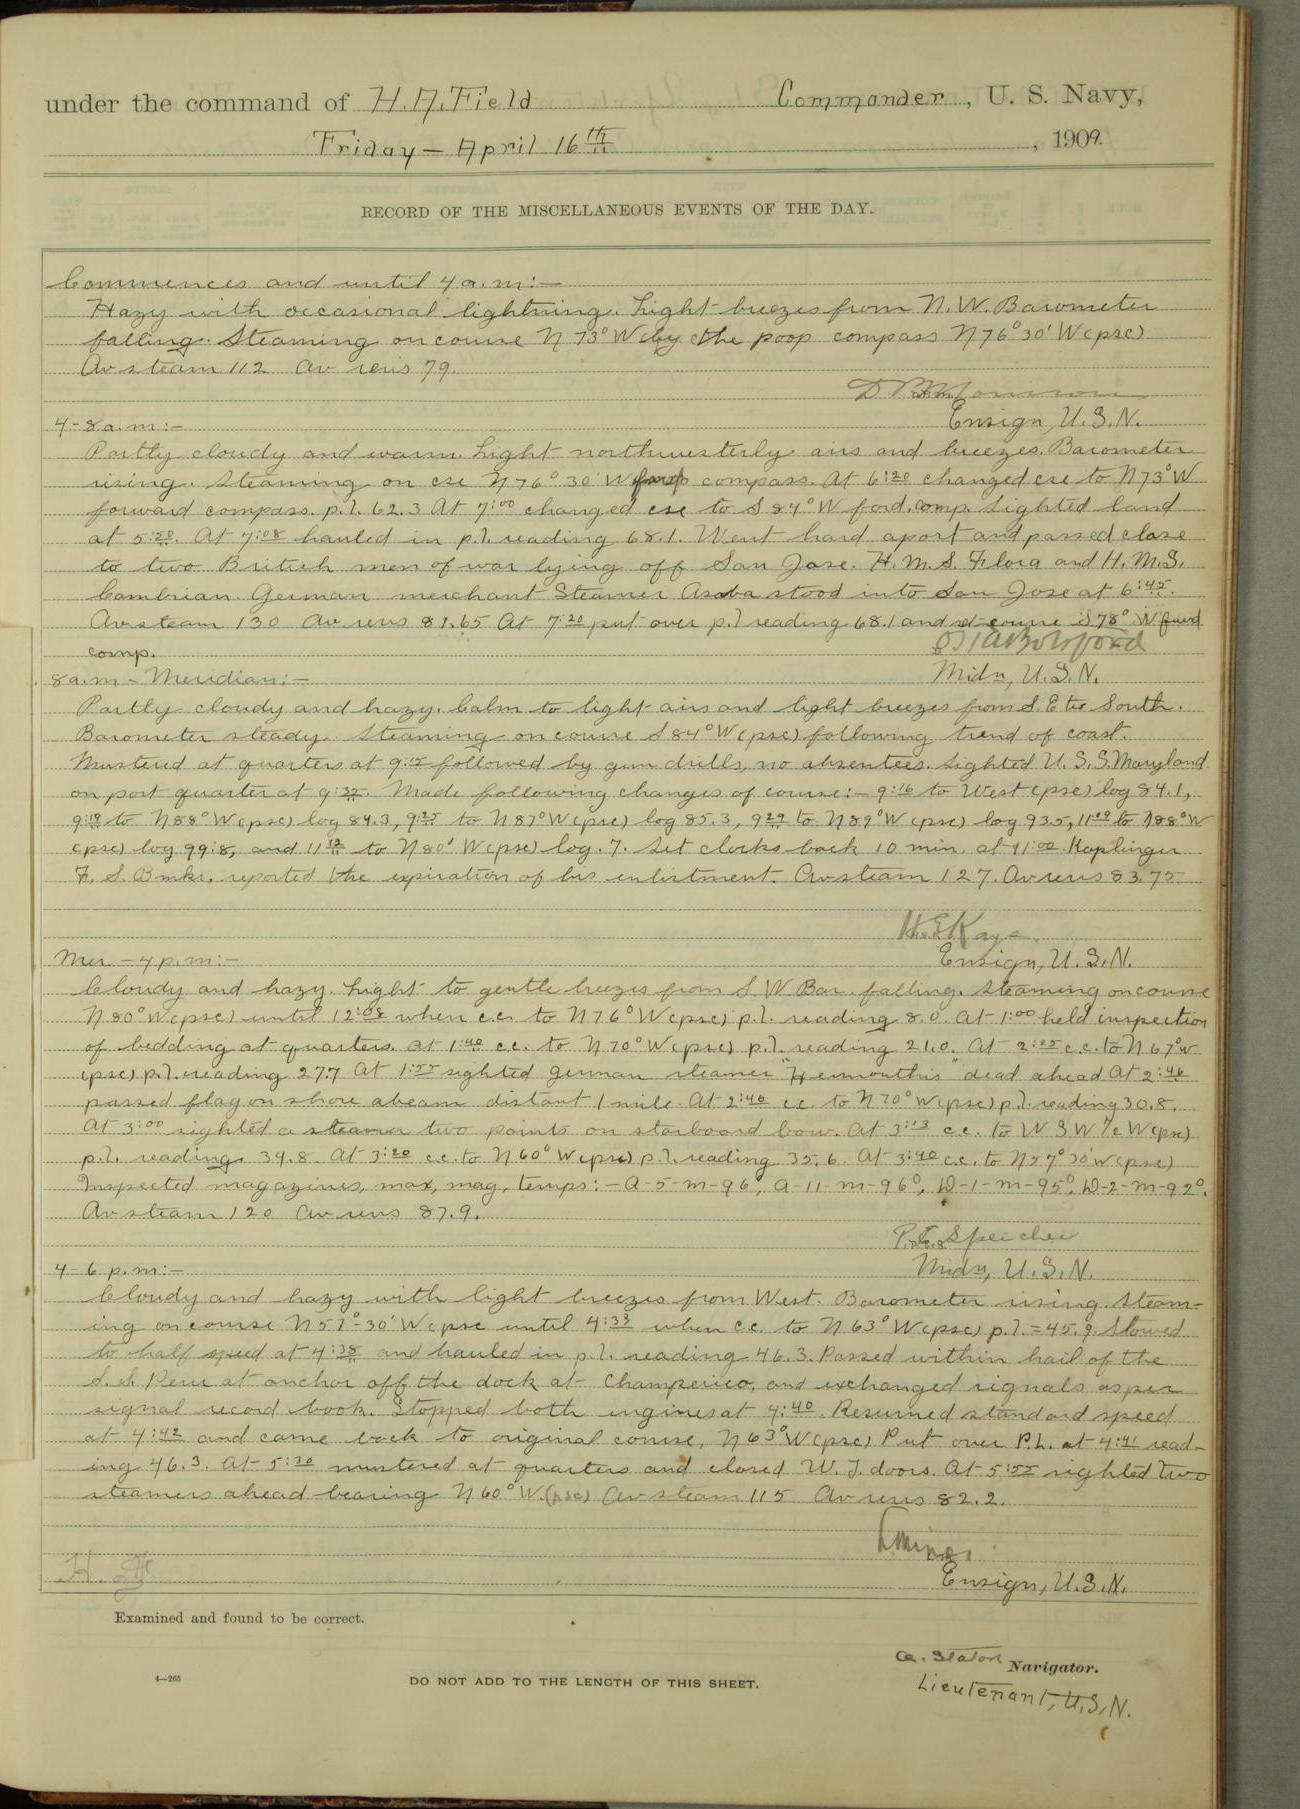 under the command of H. A. Field Commander, U. S. Navy,
Friday — April 16th, 1909.
RECORD OF THE MISCELLANEOUS EVENTS OF THE DAY.
Commences and until 4 a.m:—
Hazy with occasional lightning. Light breezes from N.W. Barometer
falling. Steaming on course N 73° W by the poop compass N 76° 30' W (psc)
Av steam 112 Av revs 79.
Ensign, U.S.N.
4-8 a.m:—
Partly cloudy and warm. Light northwesterly airs and breezes. Barometer
rising. Steaming on cse N 76° 30' W compass. At 6:20 changed cse to N 73° W
forward compass. p.l. 62.3 At 7:00 changed cse to S 84° W ford. comp. Sighted land
at 5:50. At 7:08 hauled in p.l. reading 68.1. Went hard aport and passed close
to two British men of war lying off San Jose. H.M.S. Flora and H.M.S.
Cambrian. German merchant Steamer stood into San Jose at 6:45.
Av steam 130 Av revs 81.65 At 7:20 put over p.l reading 68.1 and course S 78° W
comp.
Midn, U.S.N.
8 a.m - Meridian:—
Partly cloudy and hazy. Calm to light airs and light breezes from S.E to South.
Barometer steady. Steaming on course S 84° W (psc) following trend of coast.
Mustered at quarters at 9:15 followed by gun drills, no absentees. Sighted U.S.S. Maryland
on port quarter at 9:32. Made following changes of course:— 9:16 to West (psc) log 84.1,
9:18 to N 88° W (psc) log 84.3, 9:25 to N 87° W (psc) log 85.3, 9:29 to N 89° W (psc) log 93.5, 11:00 to N 88° W
(psc) log 99.8, and 11:12 to N 80° W (psc) log .7. Set clocks back 10 min. at 11:00. Kaplinger
F. S. Bmkr. reported the expiration of his enlistment. Av steam 127. Av revs 83.75
H.E. Kays
Ensign, U.S.N.
Mer — 4 p.m:—
Cloudy and hazy. Light to gentle breezes from S.W Bar. falling. Steaming on course
N 80° W (psc) until 12:08 when c.c. to N 76° W (psc) p.l. reading 8.0. At 1:00 held inspection
of bedding at quarters. At 1:40 c.c. to N 70° W (psc) p.l. reading 21.0. At 2:25 c.c. to N 67° W
(psc) p.l. reading 27.7 At 1:55 sighted German steamer "Hermonthis" dead ahead At 2:46
passed flag on shore abeam distant 1 mile. At 2:46 c.c. to N 70° W (psc) p.l. reading 30.8.
At 3:00 sighted a steamer two points on starboard bow. At 3:13 c.c. to W S W ½ W (psc)
p.l. reading 34.8. At 3:20 c.c. to N 60° W (psc) p.l. reading 35.6. At 3:40 c.c. to N 57° 30' W (psc)
Inspected magazines, max, mag, temps:— A-5-m-96°, A-11-m-96°, D-1-m-95°, D-2-m-92°.
Av steam 120 Av revs 87.9.
Speicher
Midn, U.S.N.
4-6 p.m:—
Cloudy and hazy with light breezes from West. Barometer rising. Steam-
ing on course N 57°-30' W (psc until 4:33 when c.c. to N 63° W (psc) p.l. = 45.9. Slowed
to half speed at 4:38 and hauled in p.l. reading 46.3. Passed within hail of the
S.S. Peru at anchor off the dock at Champerico, and exchanged signals as per
signal record book. Stopped both engines at 4:40. Resumed standard speed
at 4:42 and came back to original course, N 63° W (psc) Put over P.L. at 4:41 read-
ing 46.3. At 5:30 mustered at quarters and closed W.T. doors. At 5:55 sighted two
steamers ahead bearing N 60° W. (psc) Av steam 115 Av revs 82.2.
Ensign, U.S.N.
H. F.
Examined and found to be correct.
A. Staton Navigator.
Lieutenant, U.S.N.
4—265
DO NOT ADD TO THE LENGTH OF THIS SHEET.